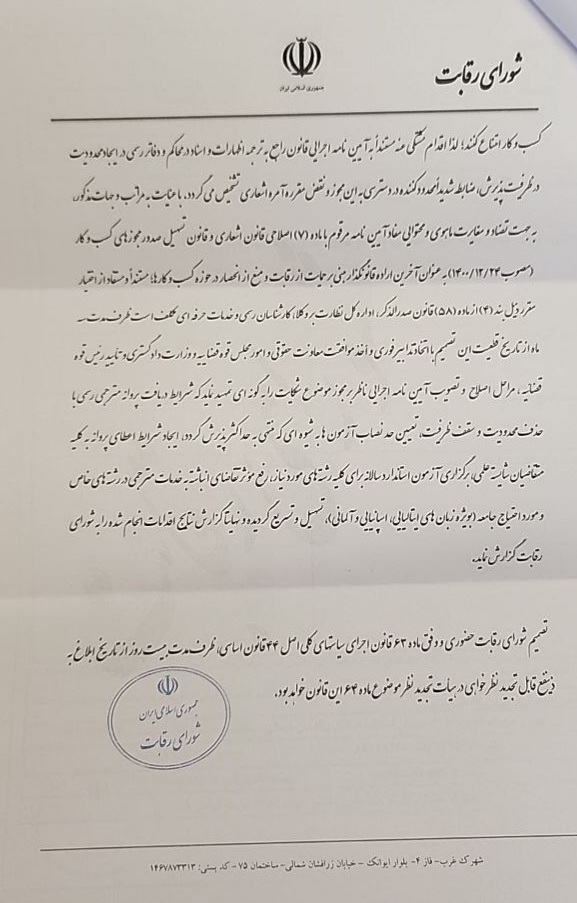 شورای رقابت
جمهوری اسلامی ایران
کسب و کار امتناع کنند؛ لذا اقدام مشتکی عنه مستنداً به آیین نامه اجرایی قانون راجع به ترجمه اظهارات و اسناد در محاکم و دفاتر رسمی در ایجاد محدودیت
در ظرفیت پذیرش، ضابطه شدیداً محدود کننده در دسترسی به این مجوز و نقض مقرره آمره اشعاری تشخیص می گردد. با عنایت به مراتب و جهات مذکور،
به جهت تضاد و مغایرت ماهوی و محتوایی مفاد آیین نامه مرقوم با ماده (۷) اصلاحی قانون اشعاری و قانون تسهیل صدور مجوزهای کسب و کار
(مصوب ۱۴۰۰/۱۲/۲۴) به عنوان آخرین اراده قانونگذار مبنی بر حمایت از رقابت و منع از انحصار در حوزه کسب و کارها؛ مستنداً و مستفاد از اختیار
مقرر ذیل بند (۴) از ماده (۵۸) قانون صدرالذکر، اداره کل نظارت بر وکلا، کارشناسان رسمی و خدمات حرفه ای مکلف است ظرف مدت سه
ماه از تاریخ قطعیت این تصمیم با اتخاذ تدابیر فوری و أخذ موافقت معاونت حقوقی و امور مجلس قوه قضاییه و وزارت دادگستری و تأیید رئیس قوه
قضائیه، مراحل اصلاح و تصویب آیین نامه اجرایی ناظر بر مجوز موضوع شکایت را به گونه ای تمهید نماید که شرایط دریافت پروانه مترجمی رسمی با
حذف محدودیت و سقف ظرفیت، تعیین حد نصاب آزمون ها به شیوه ای که منتهی به حداکثر پذیرش گردد، ایجاد شرایط اعطای پروانه به کلیه
متقاضیان شایسته علمی، برگزاری آزمون استاندارد سالانه برای کلیه رشته های مورد نیاز، رفع موثر تقاضای انباشته به خدمات مترجمی در رشته های خاص
و مورد احتیاج جامعه (بویژه زبان های ایتالیایی، اسپانیایی و آلمانی)، تسهیل و تسریع گردیده و نهایتاً گزارش نتایج اقدامات انجام شده را به شورای
رقابت گزارش نماید.
تصمیم شورای رقابت حضوری و وفق ماده ۶۳ قانون اجرای سیاستهای کلی اصل ۴۴ قانون اساسی، ظرف مدت بیست روز از تاریخ ابلاغ به
ذینفع قابل تجدید نظر خواهی در هیأت تجدید نظر موضوع ماده ۶۴ این قانون خواهد بود.
جمهوری اسلامی ایران
شورای رقابت
شهرک غرب- فاز ۴- بلوار ایوانک - خیابان زرافشان شمالی- ساختمان ۷۵ - کد پستی: ۱۴۶۷۸۷۳۳۱۳